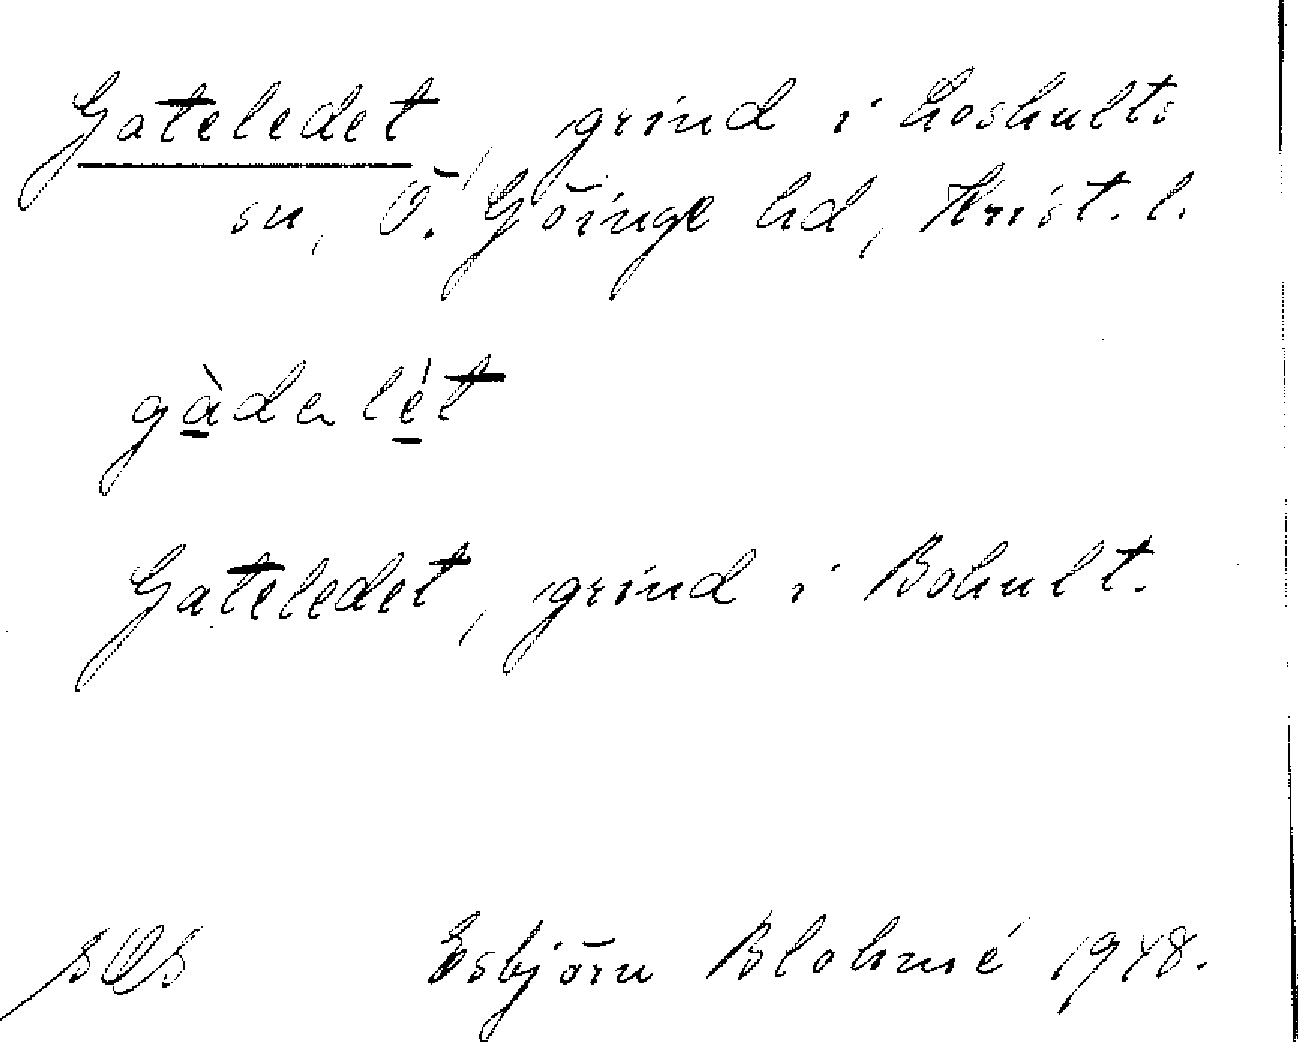 Gateledet, grind i Loshults
sn, Ö. Göinge hd, Krist. l.
gàdəlét
Gateledet, grind i Bohult.
Esbjörn Blohmé 1948.